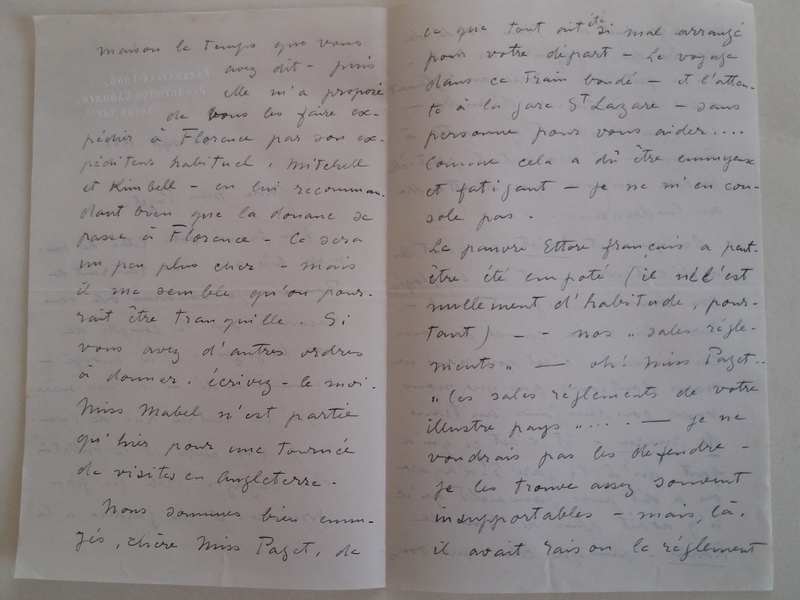 maison le temps que vous
avez dit - puis
elle m'a proposé
de vous les faire ex-
pédier à Florence par son ex-
péditeur habituel, Mitchell
et Kimbell - en lui recomman-
dant bien que la douane se
passe à Florence - Ce sera
un peu plus cher - mais
il me semble qu'on pour-
rait être tranquille. Si
vous avez d'autres ordres
à donner, écrivez-le moi.
Miss Mabel n'est partie
qu'hier pour une tournée
de visites en Angleterre.
Nous sommes bien ennu-
yés, chère Miss Paget, de
ce que tout ait été si mal arrangé
pour votre départ - Le voyage
dans ce train bondé - et l'atten-
te à la gare St Lazare - sans
personne pour vous aider....
Comme cela a dû être ennuyeux
et fatigant - je ne m'en con-
sole pas.
Le pauvre Ettore français a peut-
être été empoté (il n'l'est
nullement d'habitude, pour-
tant) - - nos "sales règle-
ments" - oh! Miss Paget..
"les sales règlements de votre
illustre pays".... - je ne
voudrais pas les défendre -
je les trouve assez souvent
insupportables - mais, là,
il avait raison le règlement